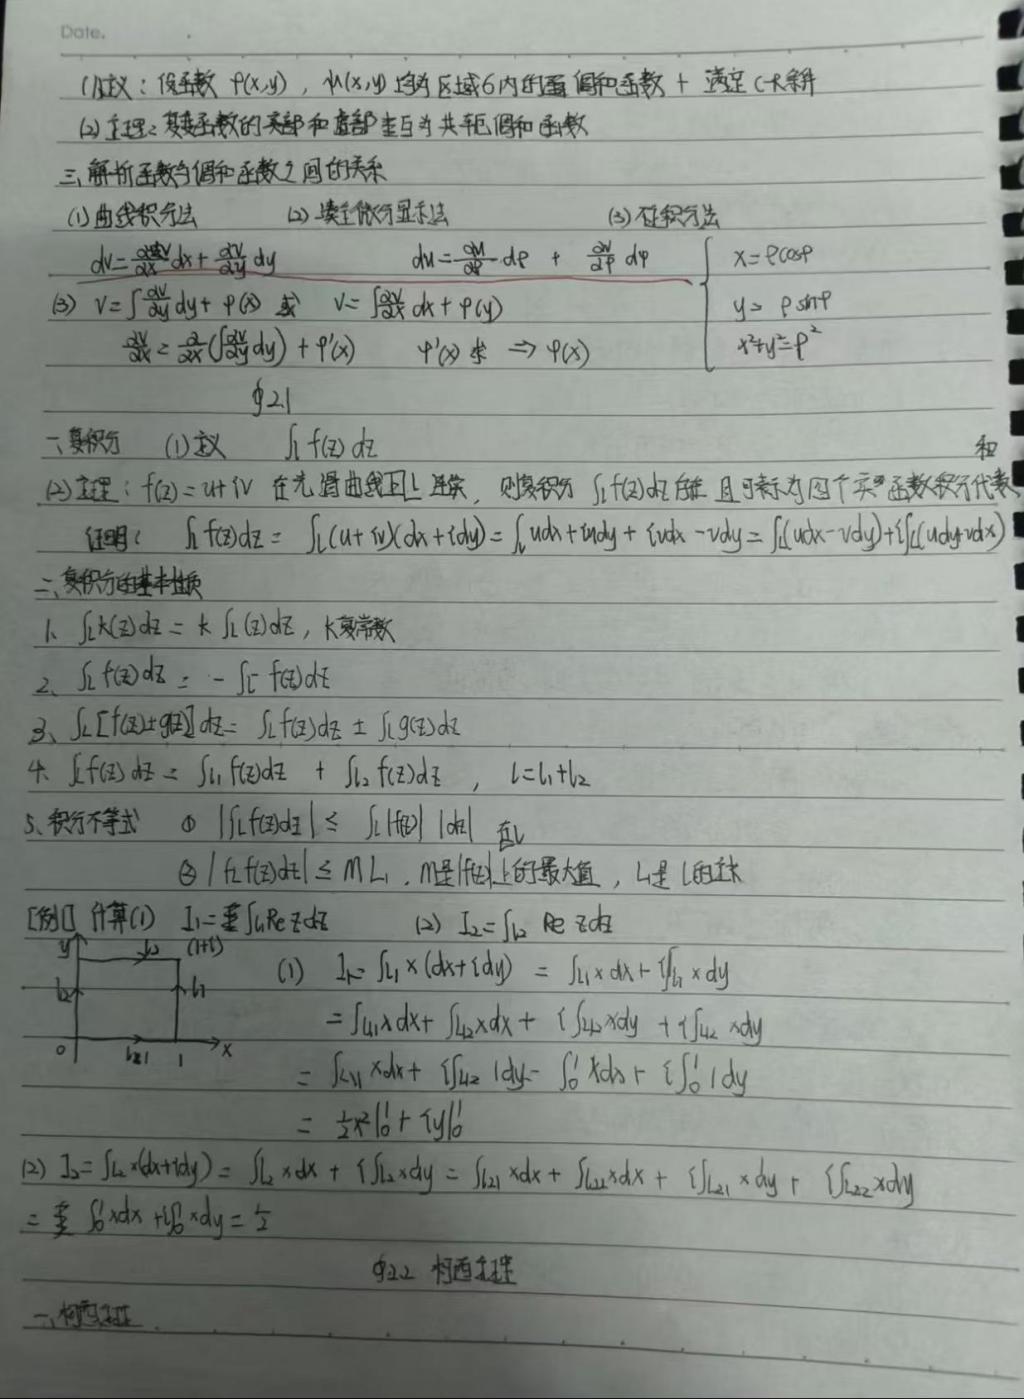 Date.
(1)定义：设函数 φ(x,y), ψ(x,y)均为区域G内的调和函数 + 满足C-R条件
(2)定理：复变函数的实部和虚部互为共轭调和函数
三、解析函数与调和函数之间的关系
(1)曲线积分法 (2)凑全微分显示法 (3)不定积分法
dv=∂v/∂x dx+∂v/∂y dy du=∂u/∂ρ dρ + ∂u/∂φ dφ x=ρcosφ
(3) v=∫∂v/∂y dy+φ(x) 或 v=∫∂v/∂x dx+φ(y) y=ρsinφ
∂v/∂x=∂/∂x(∫∂v/∂y dy)+φ'(x) φ'(x)求 ⇒φ(x) x²+y²=ρ²
§2.1
一、复积分 (1)定义 ∫l f(z)dz 和
(2)定理：f(z)=u+iv 在光滑曲线l上连续，则复积分∫l f(z)dz存在 且可表示为四个实函数积分代表
证明：∫l f(z)dz = ∫l(u+iv)(dx+idy)=∫l udx+iudy+ivdx-vdy=∫l(udx-vdy)+i∫l(udy+vdx)
二、复积分的基本性质
1. ∫l k(z)dz = k∫l(z)dz, k复常数
2、∫l f(z)dz = -∫l⁻ f(z)dz
3、∫l[f(z)±g(z)]dz= ∫l f(z)dz ± ∫l g(z)dz
4. ∫l f(z)dz = ∫l1 f(z)dz + ∫l2 f(z)dz, l=l1+l2
5、积分不等式 ① |∫l f(z)dz| ≤ ∫l |f(z)| |dz| 在l
② |∫l f(z)dz| ≤ ML, M是|f(z)|上的最大值, L是l的全长
[例1] 计算(1) I1=∫l1 Re zdz (2) I2=∫l2 Re zdz
y l2 (1+i)
l2 l1
0 1 x
(1) I1=∫l1 x(dx+idy) = ∫l1 xdx+i∫l1 xdy
=∫l11 xdx+∫l12 xdx+i∫l12 xdy+i∫l12 xdy
= ∫l11 xdx+i∫l12 1dy=∫₀¹xdx+i∫₀¹1dy
= ½x²|₀¹+iy|₀¹
(2) I2=∫l2 x(dx+idy)=∫l2 xdx+i∫l2 xdy=∫l21 xdx+∫l22 xdx+i∫l21 xdy+i∫l22 xdy
=∫₀¹xdx+i∫₀¹xdy=½
§2.2 柯西定理
一、柯西定理